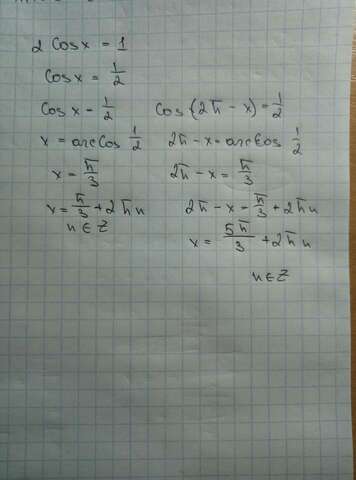 2 Cos x = 1
Cos x = 1/2
Cos x = 1/2    Cos (2π - x) = 1/2
x = arcCos 1/2    2π - x = arcCos 1/2
x = π/3    2π - x = π/3
x = π/3 + 2πn    2π - x = π/3 + 2πn
n ∈ Z    x = 5π/3 + 2πn
n ∈ Z